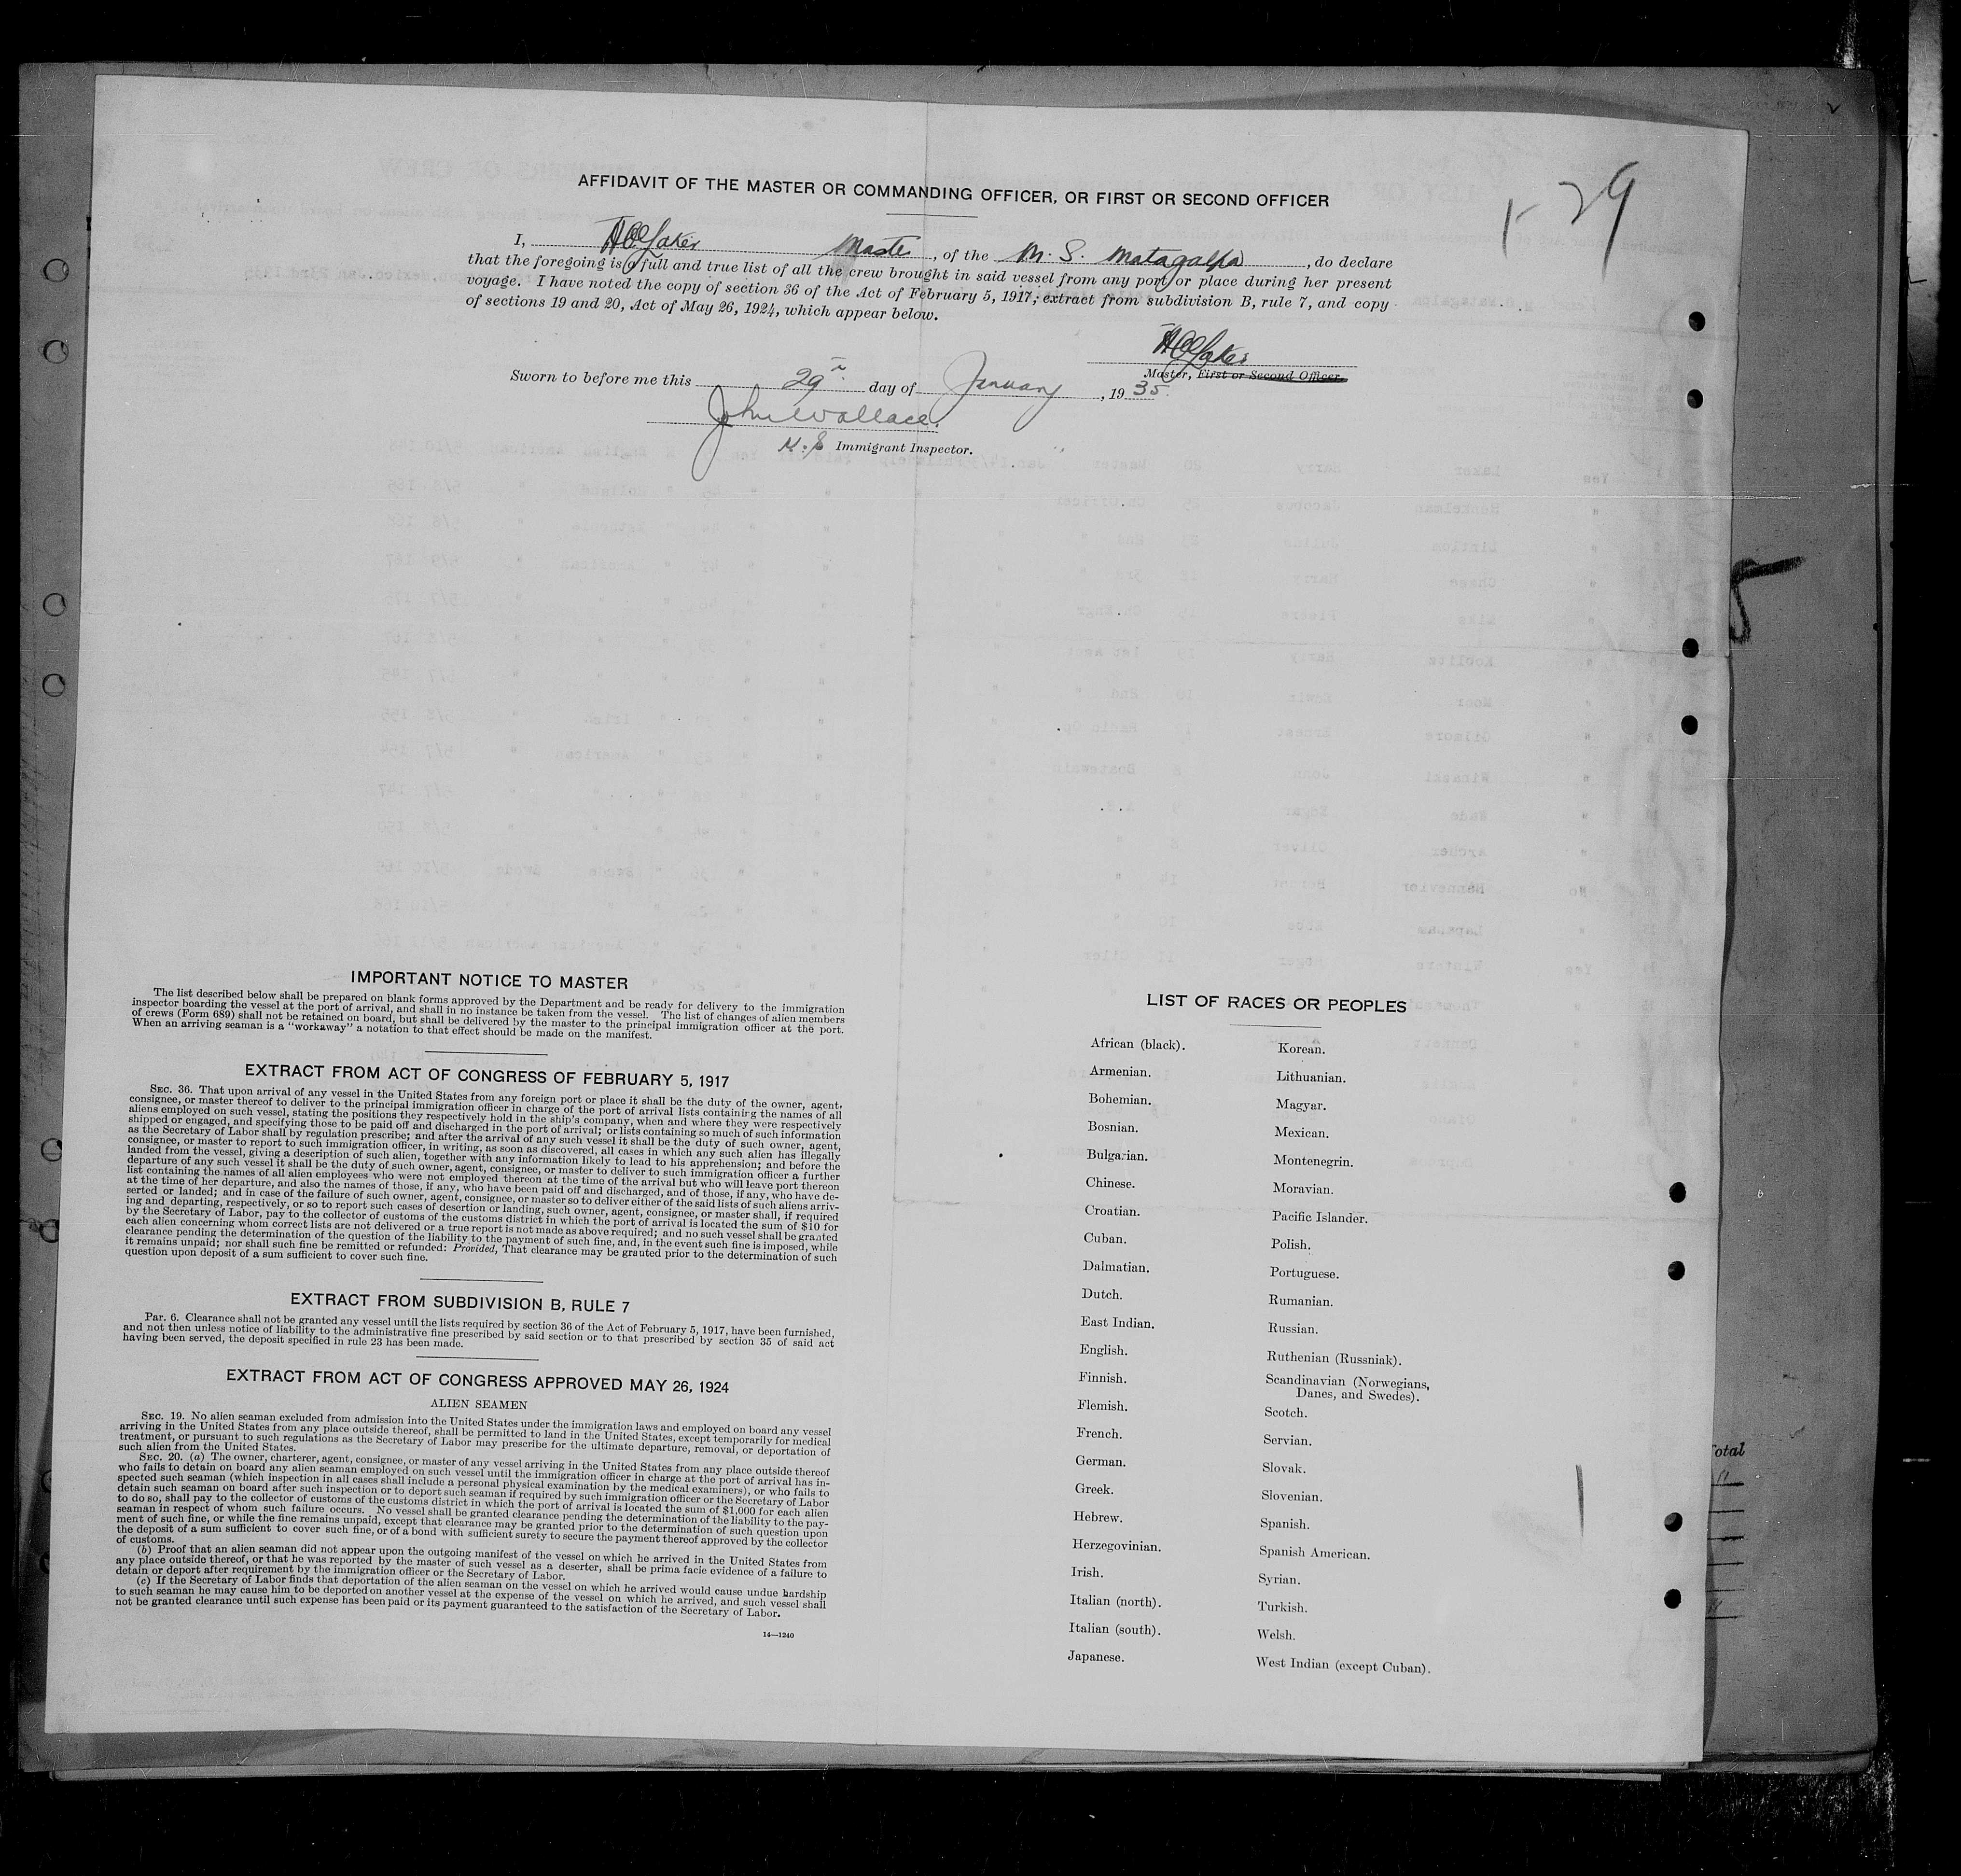 AFFIDAVIT OF THE MASTER OR COMMANDING OFFICER, OR FIRST OR SECOND OFFICER
1-29
I, Laker Master, of the M. S. Matagalpa, do declare
that the foregoing is a full and true list of all the crew brought in said vessel from any port or place during her present
voyage. I have noted the copy of section 36 of the Act of February 5, 1917; extract from subdivision B, rule 7, and copy
of sections 19 and 20, Act of May 26, 1924, which appear below.
Laker
Master, First or Second Officer.
Sworn to before me this 29 day of January, 1935.
John Wallace.
U.S Immigrant Inspector.
IMPORTANT NOTICE TO MASTER
The list described below shall be prepared on blank forms approved by the Department and be ready for delivery to the immigration
inspector boarding the vessel at the port of arrival, and shall in no instance be taken from the vessel. The list of changes of alien members
of crews (Form 689) shall not be retained on board, but shall be delivered by the master to the principal immigration officer at the port.
When an arriving seaman is a "workaway" a notation to that effect should be made on the manifest.
EXTRACT FROM ACT OF CONGRESS OF FEBRUARY 5, 1917
SEC. 36. That upon arrival of any vessel in the United States from any foreign port or place it shall be the duty of the owner, agent,
consignee, or master thereof to deliver to the principal immigration officer in charge of the port of arrival lists containing the names of all
aliens employed on such vessel, stating the positions they respectively hold in the ship's company, when and where they were respectively
shipped or engaged, and specifying those to be paid off and discharged in the port of arrival; or lists containing so much of such information
as the Secretary of Labor shall by regulation prescribe; and after the arrival of any such vessel it shall be the duty of such owner, agent,
consignee, or master to report to such immigration officer, in writing, as soon as discovered, all cases in which any such alien has illegally
landed from the vessel, giving a description of such alien, together with any information likely to lead to his apprehension; and before the
departure of any such vessel it shall be the duty of such owner, agent, consignee, or master to deliver to such immigration officer a further
list containing the names of all alien employees who were not employed thereon at the time of the arrival but who will leave port thereon
at the time of her departure, and also the names of those, if any, who have been paid off and discharged, and of those, if any, who have de-
serted or landed; and in case of the failure of such owner, agent, consignee, or master so to deliver either of the said lists of such aliens arriv-
ing and departing, respectively, or so to report such cases of desertion or landing, such owner, agent, consignee, or master shall, if required
by the Secretary of Labor, pay to the collector of customs of the customs district in which the port of arrival is located the sum of $10 for
each alien concerning whom correct lists are not delivered or a true report is not made as above required; and no such vessel shall be granted
clearance pending the determination of the question of the liability to the payment of such fine, and, in the event such fine is imposed, while
it remains unpaid; nor shall such fine be remitted or refunded: Provided, That clearance may be granted prior to the determination of such
question upon deposit of a sum sufficient to cover such fine.
EXTRACT FROM SUBDIVISION B, RULE 7
Par. 6. Clearance shall not be granted any vessel until the lists required by section 36 of the Act of February 5, 1917, have been furnished,
and not then unless notice of liability to the administrative fine prescribed by said section or to that prescribed by section 35 of said act
having been served, the deposit specified in rule 23 has been made.
EXTRACT FROM ACT OF CONGRESS APPROVED MAY 26, 1924
ALIEN SEAMEN
SEC. 19. No alien seaman excluded from admission into the United States under the immigration laws and employed on board any vessel
arriving in the United States from any place outside thereof, shall be permitted to land in the United States, except temporarily for medical
treatment, or pursuant to such regulations as the Secretary of Labor may prescribe for the ultimate departure, removal, or deportation of
such alien from the United States.
SEC. 20. (a) The owner, charterer, agent, consignee, or master of any vessel arriving in the United States from any place outside thereof
who fails to detain on board any alien seaman employed on such vessel until the immigration officer in charge at the port of arrival has in-
spected such seaman (which inspection in all cases shall include a personal physical examination by the medical examiners), or who fails to
detain such seaman on board after such inspection or to deport such seaman if required by such immigration officer or the Secretary of Labor
to do so, shall pay to the collector of customs of the customs district in which the port of arrival is located the sum of $1,000 for each alien
seaman in respect of whom such failure occurs. No vessel shall be granted clearance pending the determination of the liability to the pay-
ment of such fine, or while the fine remains unpaid, except that clearance may be granted prior to the determination of such question upon
the deposit of a sum sufficient to cover such fine, or of a bond with sufficient surety to secure the payment thereof approved by the collector
of customs.
(b) Proof that an alien seaman did not appear upon the outgoing manifest of the vessel on which he arrived in the United States from
any place outside thereof, or that he was reported by the master of such vessel as a deserter, shall be prima facie evidence of a failure to
detain or deport after requirement by the immigration officer or the Secretary of Labor.
(c) If the Secretary of Labor finds that deportation of the alien seaman on the vessel on which he arrived would cause undue hardship
to such seaman he may cause him to be deported on another vessel at the expense of the vessel on which he arrived, and such vessel shall
not be granted clearance until such expense has been paid or its payment guaranteed to the satisfaction of the Secretary of Labor.
14—1240
LIST OF RACES OR PEOPLES
African (black).
Armenian.
Bohemian.
Bosnian.
Bulgarian.
Chinese.
Croatian.
Cuban.
Dalmatian.
Dutch.
East Indian.
English.
Finnish.
Flemish.
French.
German.
Greek.
Hebrew.
Herzegovinian.
Irish.
Italian (north).
Italian (south).
Japanese.
Korean.
Lithuanian.
Magyar.
Mexican.
Montenegrin.
Moravian.
Pacific Islander.
Polish.
Portuguese.
Rumanian.
Russian.
Ruthenian (Russniak).
Scandinavian (Norwegians,
Danes, and Swedes).
Scotch.
Servian.
Slovak.
Slovenian.
Spanish.
Spanish American.
Syrian.
Turkish.
Welsh.
West Indian (except Cuban).